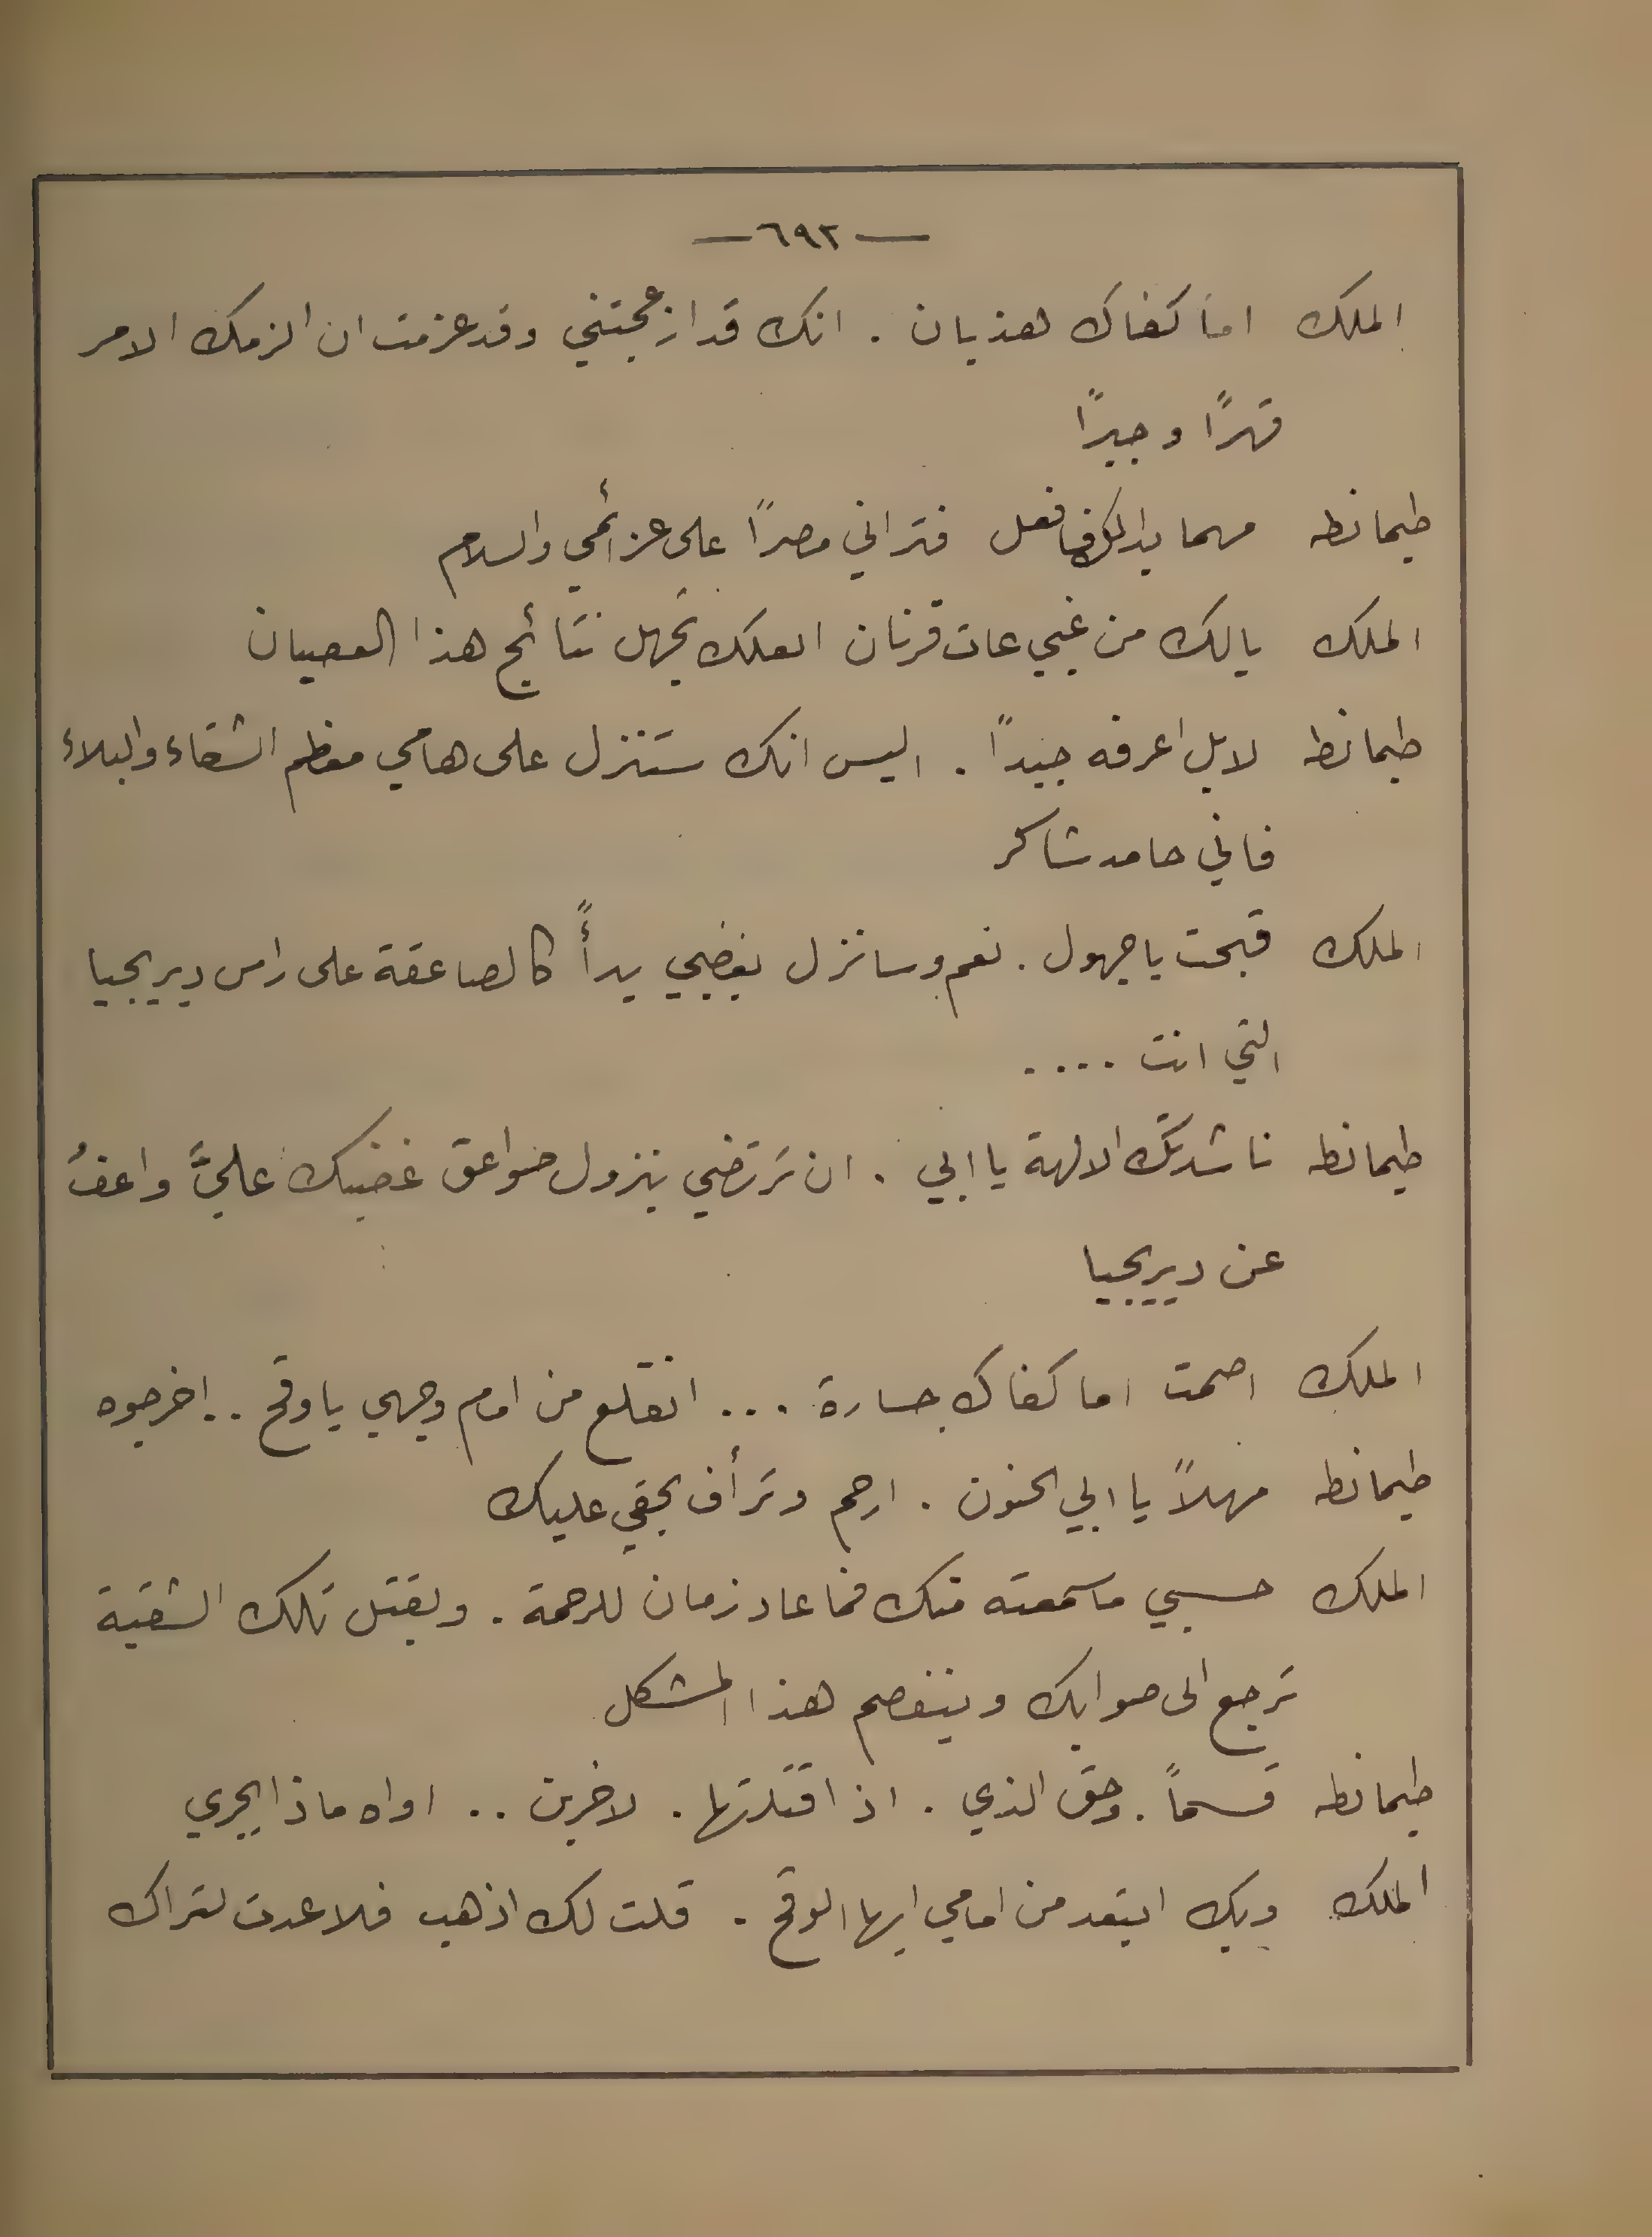 — ٦٩٢ —
الملك اما كفاك هذيان . انك قد ازعجتني وقد عزمت ان الزمك الامر
قهرًا وجبرًا
طيمانطه مهما بدالك فافعل فتراني مصرًا على عزائمي والسلام
الملك يالك من غبي عات قرنان العلك تجهل نتائج هذا العصيان
طيمانطه لا بل اعرفه جيدًا . اليس انك ستنزل على هامي معظم الشقاء والبلاء
فاني حامد شاكر
الملك قبحت يا جهول . نعم وسانزل بغضبي بدأً كالصاعقة على راس ديريجيا
التي انت ....
طيمانطه ناشدتك الالهة يا ابي . ان ترتضي بنزول صواعق غضبك عليَّ واعفُ
عن ديريجيا
الملك اصمت اما كفاك جسارة ... انقلع من امام وجهي يا وقح .. اخرجوه
طيمانطه مهلاً يا ابي الحنون . ارحم وترأف بحقي عليك
الملك حسبي ما سمعته منك فما عاد زمان للرحمة . وبقتل تلك الشقية
ترجع الى صوابك وينفصم هذا المشكل
طيمانطه قسماً . وحق الذي . اذا قتلتها . لاخربن .. اواه ماذا يجري
الملك ويك ابتعد من امامي ايها الوقح . قلت لك اذهب فلا عدت لتراك